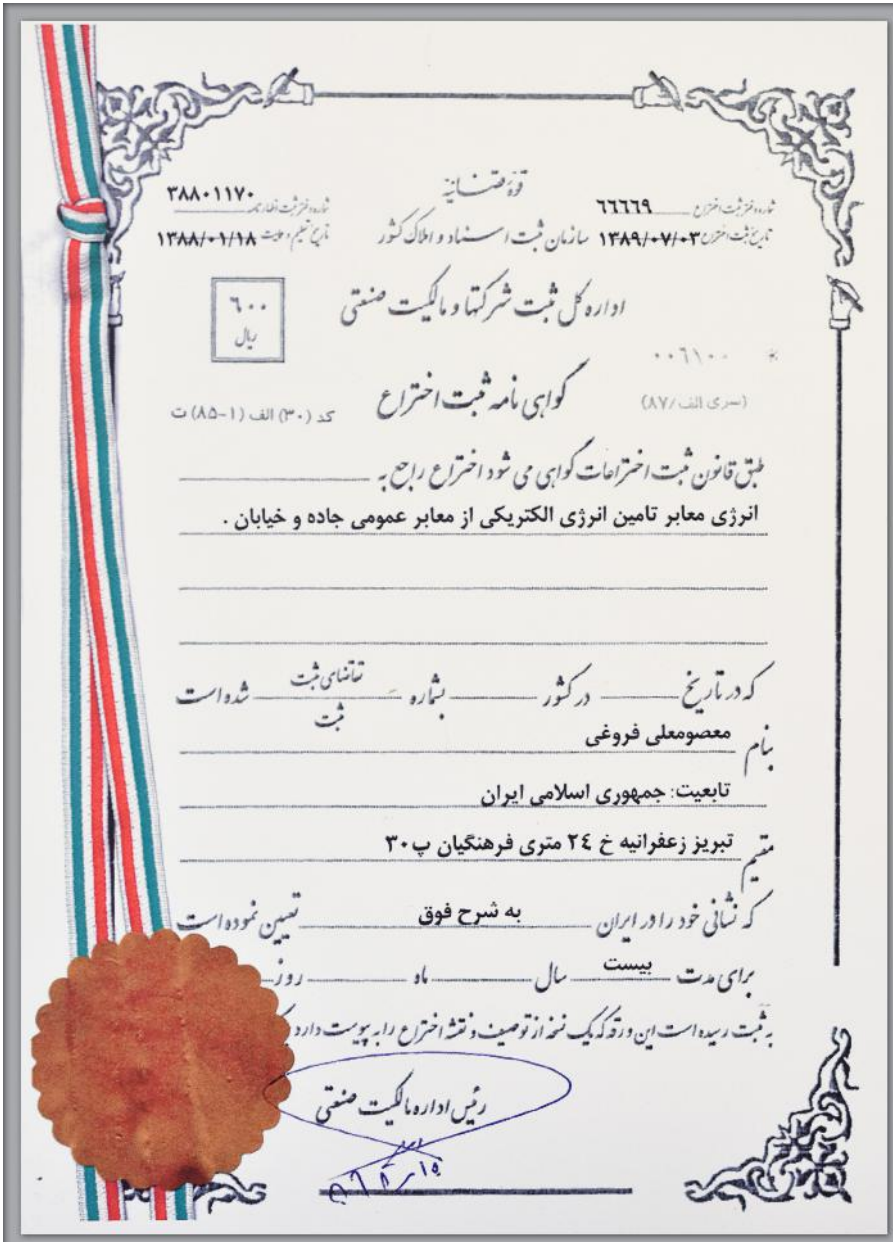 قوهٔ قضائیه
شماره دفتر ثبت اختراع ٦٦٦٦٩
تاریخ ثبت اختراع ١٣٨٩/٠٧/٠٣
سازمان ثبت اسناد و املاک کشور
٣٨٨٠١١٧٠
شماره دفتر ثبت اظهارنامه
تاریخ تسلیم و ١٣٨٨/٠١/١٨
اداره کل ثبت شرکتها و مالکیت صنعتی
٦٠٠
ریال
* ٠٠٦١٠٠
(سری الف/٨٧)
گواهی نامه ثبت اختراع
کد (٣٠) الف (١-٨٥) ت
طبق قانون ثبت اختراعات گواهی می شود اختراع راجع به
انرژی معابر تامین انرژی الکتریکی از معابر عمومی جاده و خیابان .
که در تاریخ در کشور بشماره تقاضای ثبت شده است
ثبت
بنام معصومعلی فروغی
تابعیت: جمهوری اسلامی ایران
مقیم تبریز زعفرانیه خ ٢٤ متری فرهنگیان پ ٣٠
که نشانی خود را در ایران به شرح فوق تعیین نموده است
برای مدت بیست سال ماه روز
به ثبت رسیده است این ورقه که یک نسخه از توصیف و نقشه اختراع را به پیوست دارد
رئیس اداره مالکیت صنعتی